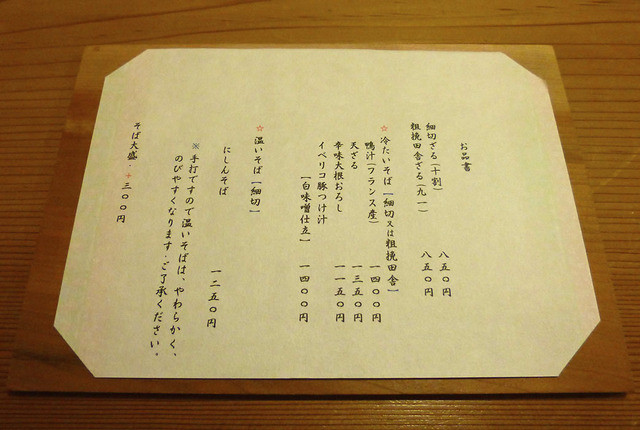 お品書
細切ざる(十割) 八五〇円
粗挽田舎ざる(九一) 八五〇円
☆冷たいそば【細切又は粗挽田舎】
鴨汁(フランス産) 一四〇〇円
天ざる 一三五〇円
辛味大根おろし 一一五〇円
イベリコ豚つけ汁
【白味噌仕立】 一四〇〇円
☆温いそば【細切】
にしんそば 一二五〇円
※手打ですので温いそばは、やわらかく、
のびやすくなります。ご了承ください。
そば大盛・+三〇〇円